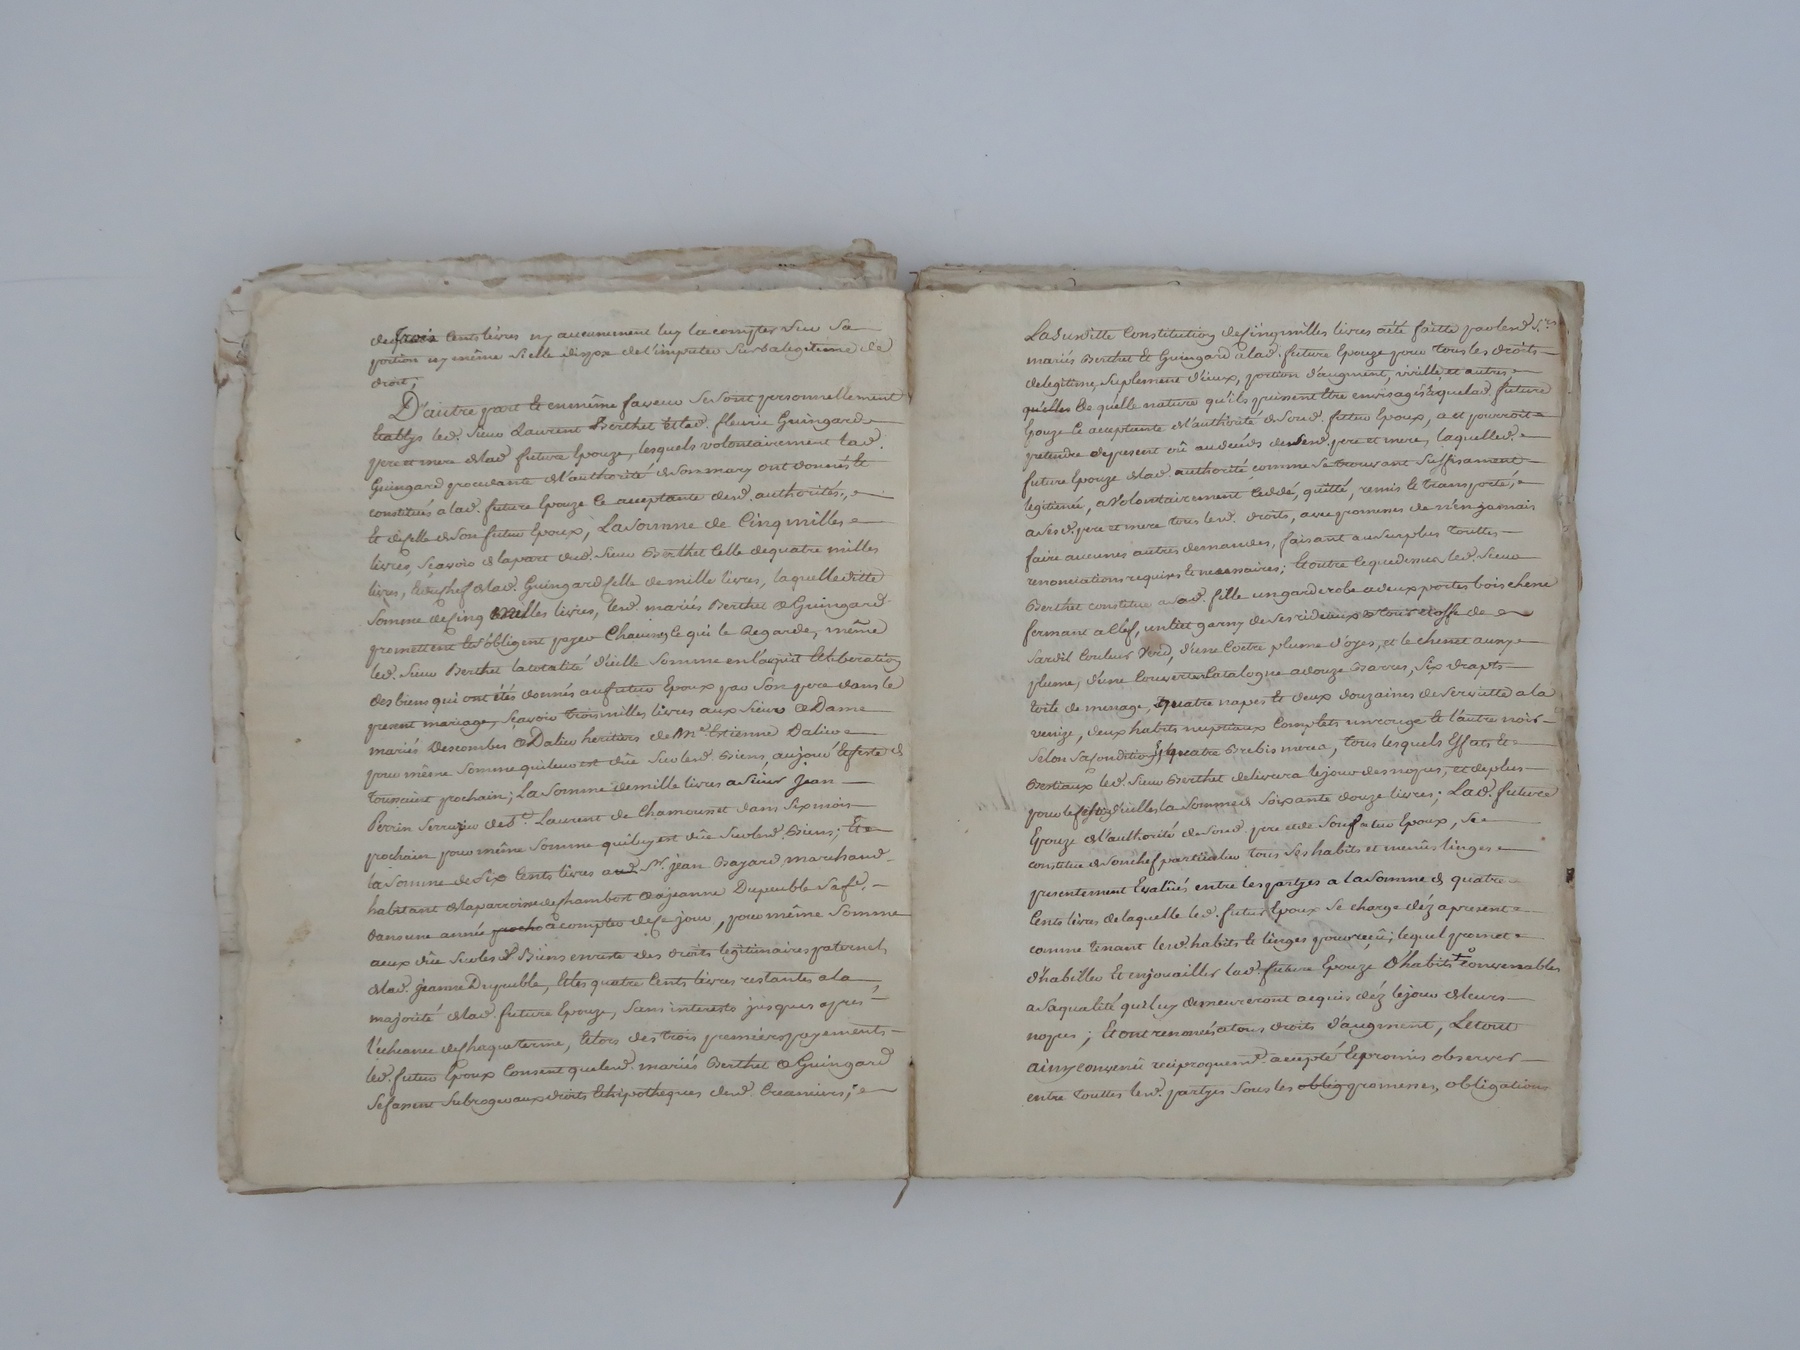 de trois Cents livres ny aucunement luy la compter sur sa
portion ny même si elle dizpoze de l'imputer sur sa legitime de
droit;
D'autre part et en même faveur se sont personnellement
établys led. Sieur Laurent Berthet et lad. fleurie Guingard
pere et mere de lad. future Epouze, lesquels volontairement lad.
Guingard procedante de l'authorité de son mary ont donnés et
constitués à lad. future Epouze ce acceptante desd. authorités,
et de celle de son futur Epoux, La Somme de Cinq milles
livres, Sçavoir de la part dud. Sieur Berthet Celle de quatre milles
livres, et du chef de lad. Guingard celle de mille livres, laquelle ditte
Somme de Cinq milles livres, lesd. mariés Berthet et Guingard
promettent et s'obligent payer Chacun ce qui le Regarde, même
led. Sieur Berthet la totalité d'icelle Somme en l'acquit et liberation
des biens qui ont étés donnés au futur Epoux par Son pere dans le
present mariage, Sçavoir trois milles livres aux Sieur et Dame
mariés Descombes et Dalier heritiers de Me. Estienne Dalier
pour même Somme qui leur est düe sur lesd. Biens, au jour et feste de
toussaint prochain; La Somme de mille livres a Sieur Jean
Perrin Serrurier de St. Laurent de Chamousset dans Six mois
prochain pour même Somme qui luy est düe sur lesd. Biens; Et
la Somme de Six Cents livres aud. Sr. jean Bayard marchand
habitant de la parroisse de Chambost et a jeanne Dupeuble Sa fe.
dans une année procha a compter de ce jour, pour même Somme
a eux düe sur lesd. Biens en reste des droits legitimaires paternels
de lad. jeanne Dupeuble, Et les quatre Cents livres restantes a la
majorité de lad. future Epouze, Sans interests jusques apres
l'echeance de Chaque terme, et lors des trois premiers payements
led. futur Epoux Consent que lesd. mariés Berthet et Guingard
se fassent Subroger aux droits et hipotheques desd. Creanciers;
La Susditte Constitution de Cinq milles livres a été faitte par lesd. Srs
mariés Berthet et Guingard a lad. future Epouze pour tous les droits
de legitime, suplement d'iceux, portion d'augment, virille, et autres
qu'elles de quelle nature qu'ils puissent être envisagés que lad. future
Epouze ce acceptante de l'authorité de Sond. futur Epoux, a et pourroit
pretendre de present où au decéds de sesd. pere et mere, laquelle d.
future Epouze de lad. authorité, comme se trouvant suffisament
legitimée, a Volontairement Ceddé, quitté, remis et transporté,
a Sesd. pere et mere tous lesd. droits, avec promesses de n'en jamais
faire aucunes autres demandes, faisant au surplus touttes
renonciations requises et necessaires; Et outre ce que dessus led. Sieur
Berthet constitue a Sad. fille un garderobe a deux portes bois chene
fermant a Clef, un lit garny de Ses rideaux de
Sardil Couleur Verd, d'une Coetre plume d'oyes, et le chevet aussy
plume, d'une Couverte Catalogne a douze Barres, Six drapts
toile de menage, quatre napes et deux douzaines de Serviette a la
venize, deux habits nuptiaux Complets un rouge et l'autre noir
Selon Sa Condition, quatre Brebis meres, tous lesquels Effets et
Bestiaux led. Sieur Berthet delivrera le jour des nopces, et de plus
la Somme de Soixante douze livres; Lad. future
Epouze de l'authorité de Sond. pere et de Son futur Epoux, Se
constitue de Son chef particulier tous Ses habits et menus linges
presentement Evalüés entre les partyes a la Somme de quatre
Cents livres de laquelle led. futur Epoux Se charge déz a present
comme tenant lesd. habits et linges pour reçeü; lequel promet
d'habiller Et enjouailler lad. future Epouze d'habits et convenables
a Sa qualité qui luy demeureront acquis déz le jour de leurs
nopces; Et ont renoncés a tous droits d'augment, Le tout
ainsy convenü reciproquemt. accepté Et promis observer
entre touttes lesd. partyes Sous les oblig promesses, obligations